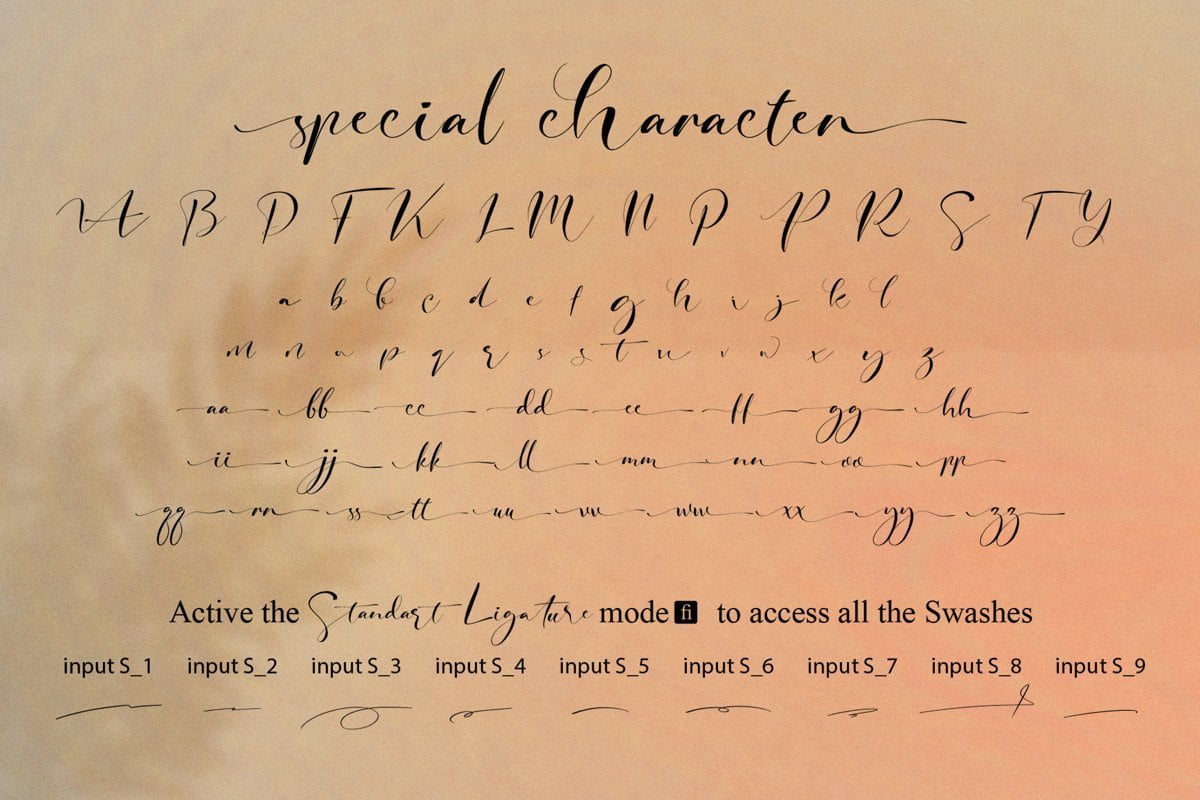 special character
A B D F K L M N P P R S T Y
a b b c d e f g h i j k l
m n o p q r s s t u v w x y z
aa bb cc dd ee ff gg hh
ii jj kk ll mm nn oo pp
qq rr ss tt uu vv ww xx yy zz
Active the Standart Ligature mode fi to access all the Swashes
input S_1 input S_2 input S_3 input S_4 input S_5 input S_6 input S_7 input S_8 input S_9